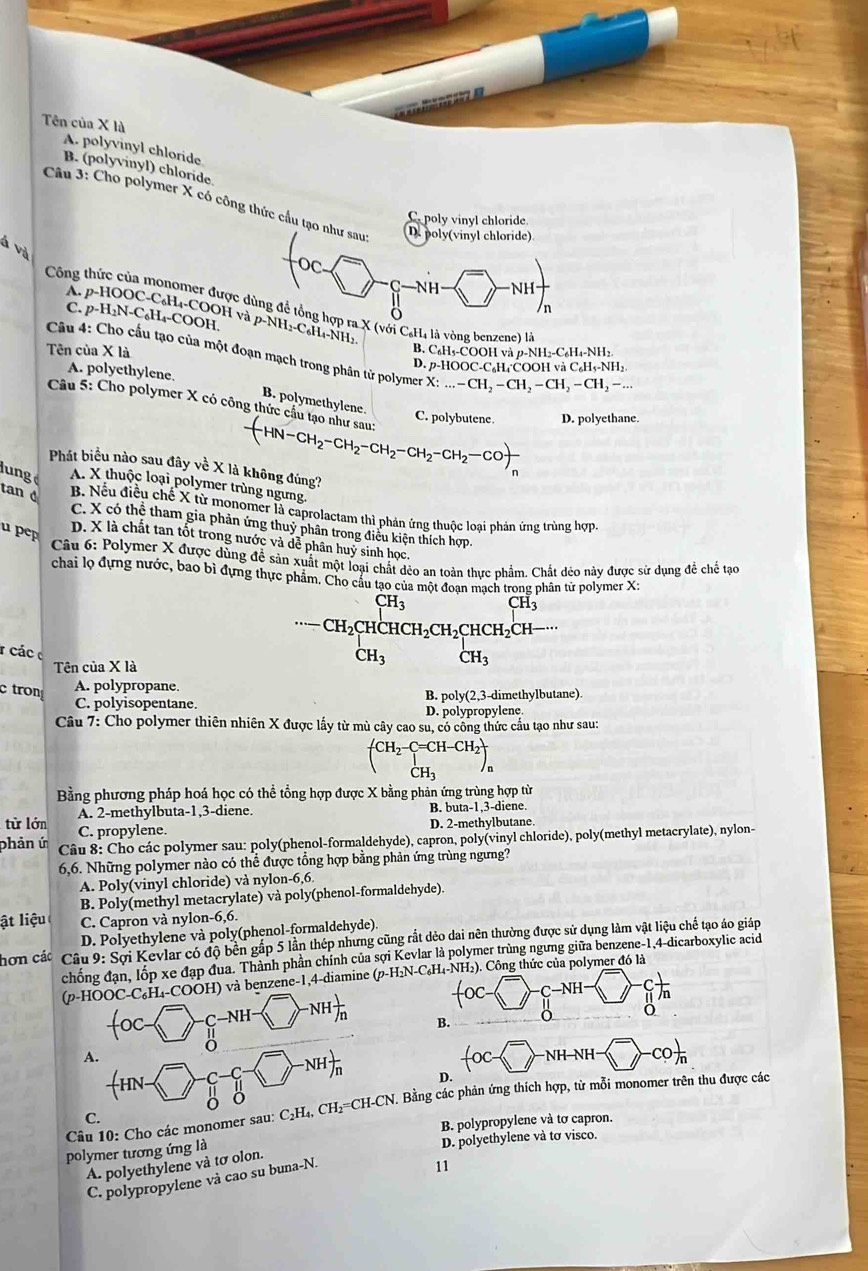 Tên của X là
A. polyvinyl chloride.
B. (polyvinyl) chloride.
C. poly vinyl chloride.
D. poly(vinyl chloride).
Câu 3: Cho polymer X có công thức cấu tạo như sau:
(OC C NH NH)n
O
Công thức của monomer được dùng để tổng hợp ra X (với C₆H₄ là vòng benzene) là
A. p-HOOC-C₆H₄-COOH và p-NH₂-C₆H₄-NH₂.
B. C₆H₅-COOH và p-NH₂-C₆H₄-NH₂.
C. p-H₂N-C₆H₄-COOH.
D. p-HOOC-C₆H₄-COOH và C₆H₅-NH₂.
Câu 4: Cho cấu tạo của một đoạn mạch trong phân tử polymer X: ...–CH₂–CH₂–CH₂–CH₂–...
Tên của X là
A. polyethylene.
B. polymethylene.
C. polybutene.
D. polyethane.
Câu 5: Cho polymer X có công thức cấu tạo như sau:
(HN–CH₂–CH₂–CH₂–CH₂–CH₂–CO)n
Phát biểu nào sau đây về X là không đúng?
A. X thuộc loại polymer trùng ngưng.
B. Nếu điều chế X từ monomer là caprolactam thì phản ứng thuộc loại phản ứng trùng hợp.
C. X có thể tham gia phản ứng thuỷ phân trong điều kiện thích hợp.
D. X là chất tan tốt trong nước và dễ phân huỷ sinh học.
Câu 6: Polymer X được dùng để sản xuất một loại chất dẻo an toàn thực phẩm. Chất dẻo này được sử dụng để chế tạo
chai lọ đựng nước, bao bì đựng thực phẩm. Cho cấu tạo của một đoạn mạch trong phân tử polymer X:
CH₃ CH₃
···–CH₂CHCHCH₂CH₂CHCH₂CH–···
CH₃ CH₃
Tên của X là
A. polypropane.
B. poly(2,3-dimethylbutane).
C. polyisopentane.
D. polypropylene.
Câu 7: Cho polymer thiên nhiên X được lấy từ mủ cây cao su, có công thức cấu tạo như sau:
(CH₂–C=CH–CH₂)n
CH₃
Bằng phương pháp hoá học có thể tổng hợp được X bằng phản ứng trùng hợp từ
A. 2-methylbuta-1,3-diene.
B. buta-1,3-diene.
C. propylene.
D. 2-methylbutane.
Câu 8: Cho các polymer sau: poly(phenol-formaldehyde), capron, poly(vinyl chloride), poly(methyl metacrylate), nylon-
6,6. Những polymer nào có thể được tổng hợp bằng phản ứng trùng ngưng?
A. Poly(vinyl chloride) và nylon-6,6.
B. Poly(methyl metacrylate) và poly(phenol-formaldehyde).
C. Capron và nylon-6,6.
D. Polyethylene và poly(phenol-formaldehyde).
Câu 9: Sợi Kevlar có độ bền gấp 5 lần thép nhưng cũng rất dẻo dai nên thường được sử dụng làm vật liệu chế tạo áo giáp
chống đạn, lốp xe đạp đua. Thành phần chính của sợi Kevlar là polymer trùng ngưng giữa benzene-1,4-dicarboxylic acid
(p-HOOC-C₆H₄-COOH) và benzene-1,4-diamine (p-H₂N-C₆H₄-NH₂). Công thức của polymer đó là
A. (OC C–NH NH)n
O
B. (OC C–NH C)n
O O
C. (HN C–C NH)n
O O
D. (OC NH–NH CO)n
Câu 10: Cho các monomer sau: C₂H₄, CH₂=CH-CN. Bằng các phản ứng thích hợp, từ mỗi monomer trên thu được các
polymer tương ứng là
A. polyethylene và tơ olon.
B. polypropylene và tơ capron.
C. polypropylene và cao su buna-N.
D. polyethylene và tơ visco.
11
và
tan
u pep
các
c trong
tử lớn
phản ứ
ật liệu
hơn các